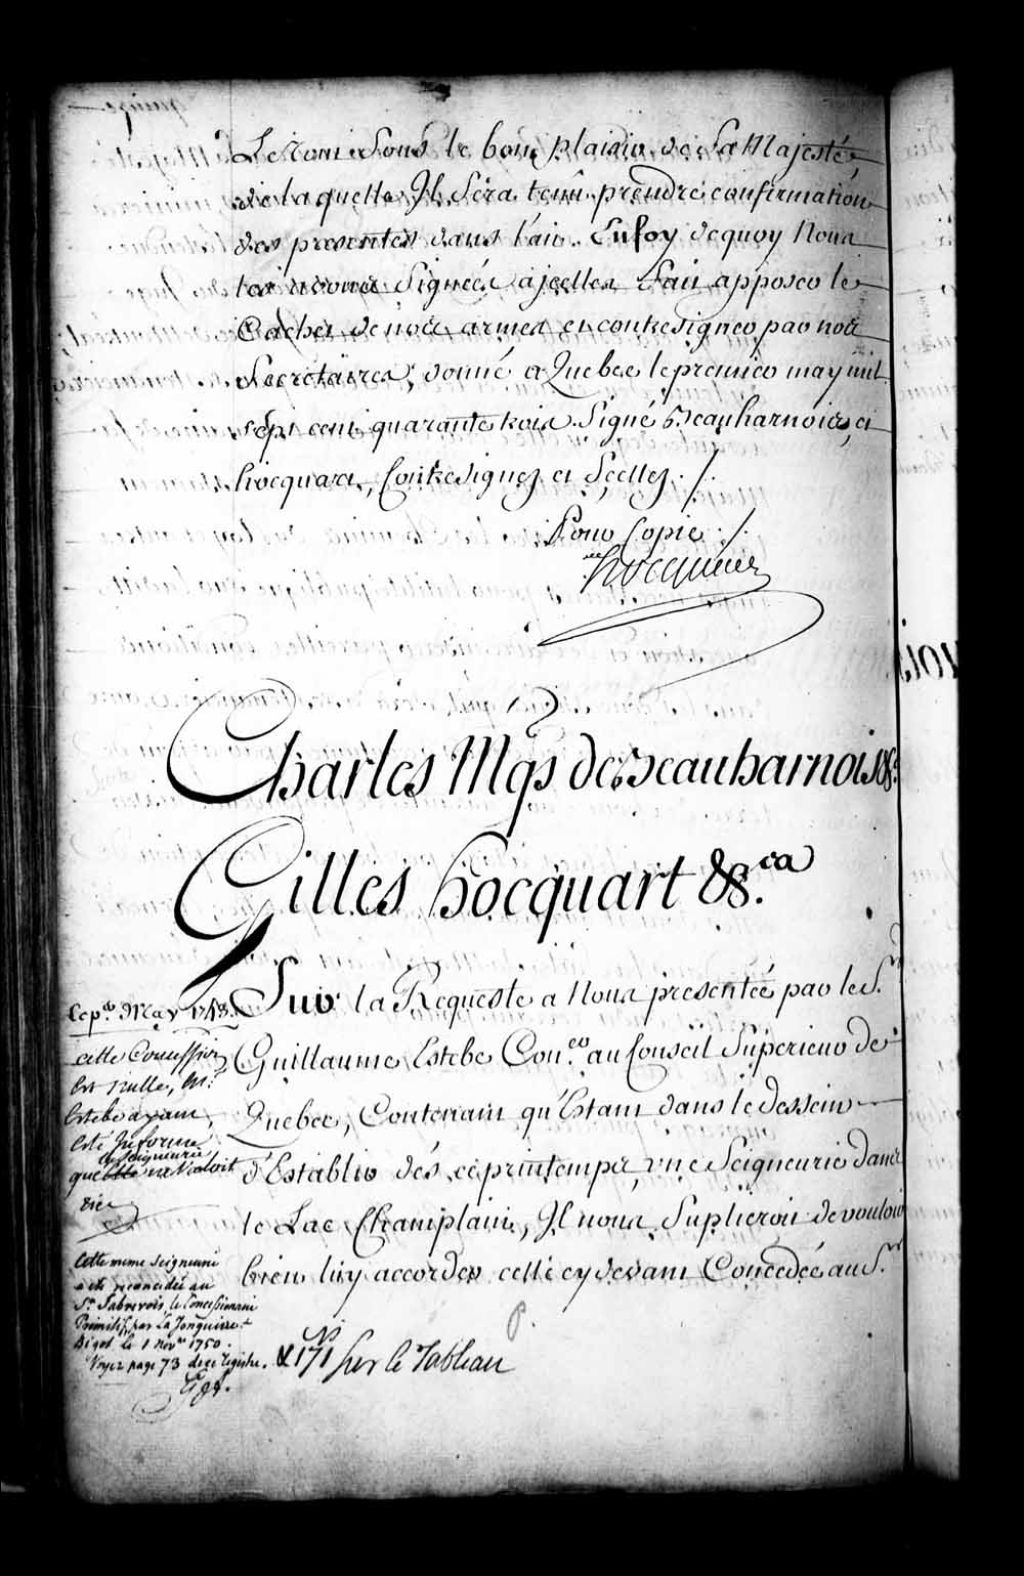 Le Tout Sous le bon plaisir de Sa Majesté,
de laquelle Il Sera tenû prendre confirmation
des presentes dans l'an. Enfoy dequoy Nous
les avons Signées à jcelles fait apposer le
Cachet de nos armes et contresigner par nos
Secretaires, donné a Quebec le premier may mil
sept cent quarante trois. Signé Beauharnois, et
hocquart, Contresignez et Scellez ./.
Pour Copie ./.
Hocquart
Charles Mqs de Beauharnois &c.
Gilles hocquart &c.ca
Sur la Requeste a Nous presentée par le S.r
Guillaume Estebe Con.er au Conseil Superieur de
Quebec, Contenant qu'Estant dans le dessein
d'Establir dés ce printemps, une Seigneurie dans
le Lac Champlain, Il nous Suplieroit de vouloir
bien luy accorder celle cy devant Concedée au S.r
Le p.er May 1743.
cette Concession
Est Nulle, M.r
Estebe ayant
Esté Informé
que la Seigneurie ne Valoit
rien
Cette meme Seigneurie
a eté reconcedée au
S.r Sabrevois, le Concessionaire
Primitif, par La Jonquiere &
Bigot le 1 Nov.re 1750.
Voyez page 73 de ce Registre.
N.
& 171 Sur le Tableau